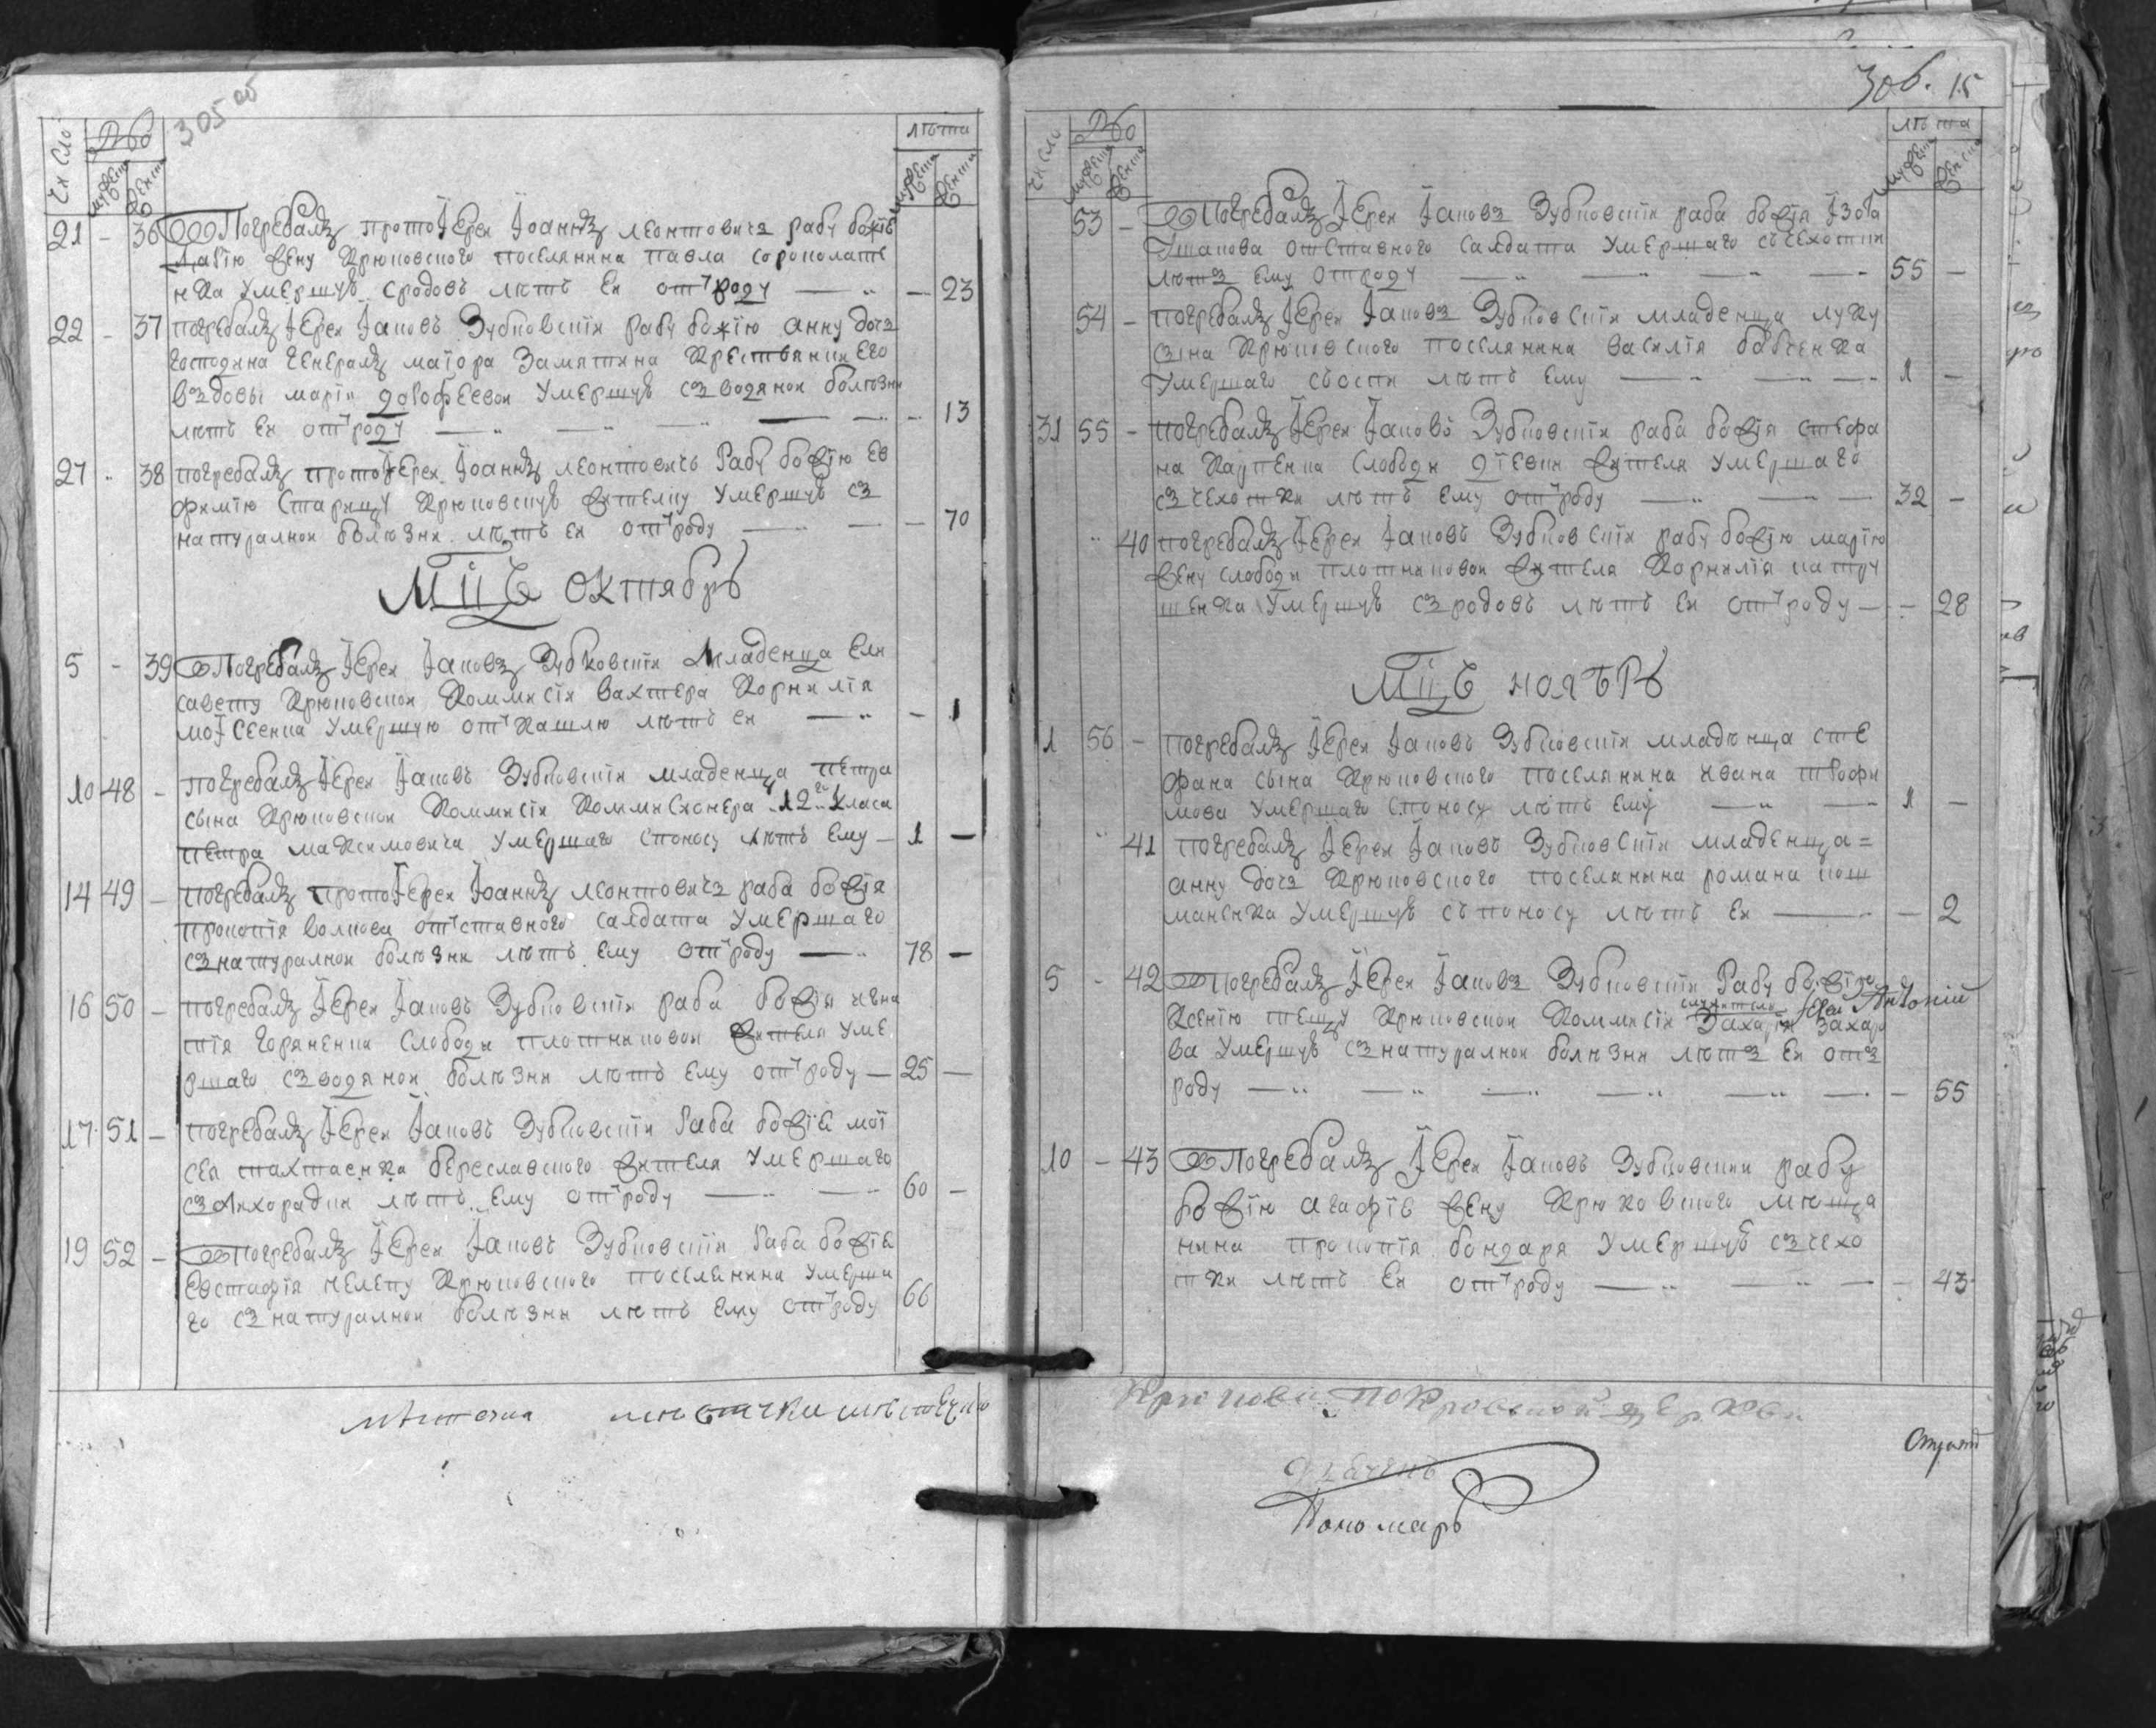 305 об
Число № мужеска женска лѣта мужеска женска
21 - 36 Погребалъ протоІерей Іоаннъ леонтовичъ рабу божію
женy Крюковского поселянина павла сороколате
нка умершую сродовъ лѣтъ Ей отъроду — - 23
22 - 37 погребалъ Іерей Іаковъ Зубковскій рабу божію анну дочь
Господина Генералъ маіора Замятина Крестьянки Его
вздовы маріи дорофеевой умершую съ водяной болѣзни
лѣтъ Ей отъроду — - 13
27 - 38 погребалъ протоІерей Іоаннъ леонтовичъ Рабу божію ев
фимію старицу Крюковскую жителку умершую съ
натуралной болѣзни лѣтъ Ей отъроду — - 70
Мцъ октябрь
5 - 39 Погребалъ Іерей Іаковъ Зубковскій младенца Ели
савету Крюковской Коммисіи вахтера Корнилія
моІсеенка умершую отъ кашлю лѣтъ Ей — - 1
10 48 - погребалъ Іерей Іаковъ Зубковскій младенца петра
сына Крюковской Коммисіи Коммисионера 12го класа
петра максимовича умершаго споносу лѣтъ Ему — 1 —
14 49 - погребалъ протоІерей Іоаннъ леонтовичъ раба божія
прокопія волкова отъставного салдата умершаго
съ натуралной болѣзни лѣтъ Ему отъроду — 78 —
16 50 - погребалъ Іерей Іаковъ Зубковскій раба божія игна
тія горяненка слободи плотниковой жителя уме
ршаго съ водяной болѣзни лѣтъ Ему отъроду — 25 —
17 51 - погребалъ Іерей Іаковъ Зубковскій раба божія мої
сея тахтаенка береславского жителя умершаго
съ лихорадки лѣтъ Ему отъроду — 60 —
19 52 - Погребалъ Іерей Іаковъ Зубковскій раба божія
Евстафія челепу Крюковского поселянина умерша
го съ натуралной болѣзни лѣтъ Ему отъроду 66
306. 15
Число № мужеска женска лѣта мужеска женска
53 - Погребалъ Іерей Іаковъ Зубковскій раба божія Ізота
ушакова отставного салдата умершаго съ чехотки
лѣтъ Ему отроду — 55 —
54 - погребалъ Іерей Іаковъ Зубковскій младенца луку
сына Крюковского поселянина василія бабченка
умершаго съоспи лѣтъ Ему — 1 —
31 55 - погребалъ Іерей Іаковъ Зубковскій раба божія стефа
на карпенка слободи жителя умершаго
съ чехотки лѣтъ Ему отъроду — 32 —
40 погребалъ Іерей Іаковъ Зубковскій рабу божію марію
жену слободи плотниковой жителя Корнилія
шенка умершую съ родовъ лѣтъ Ей отъроду — - 28
Мцъ ноябрь
1 56 - погребалъ Іерей Іаковъ Зубковскій младенца сте
фана сына Крюковского поселянина ивана трофи
мова умершаго споносу лѣтъ Ему — 1 —
41 погребалъ Іерей Іаковъ Зубковскій младенца=
анну дочь Крюковского поселянина романа кош
маненка умершую съ поносу лѣтъ Ей — - 2
5 - 42 Погребалъ Іерей Іаковъ Зубковскій Рабу божію
служителя Іерей Антоній
Ксенію тещу Крюковской Коммисіи Захарія Захаро
ва умершую съ натуралной болѣзни лѣтъ Ей отъ
роду — - 55
10 - 43 Погребалъ Іерей Іаковъ Зубковскій рабу
божію агафію жену Крюковского мѣща
нина прокопія бондаря умершую съ чехо
тки лѣтъ Ей отъроду — - 43
мѣстечка
Крюкова Покровской церкви
Пономарь